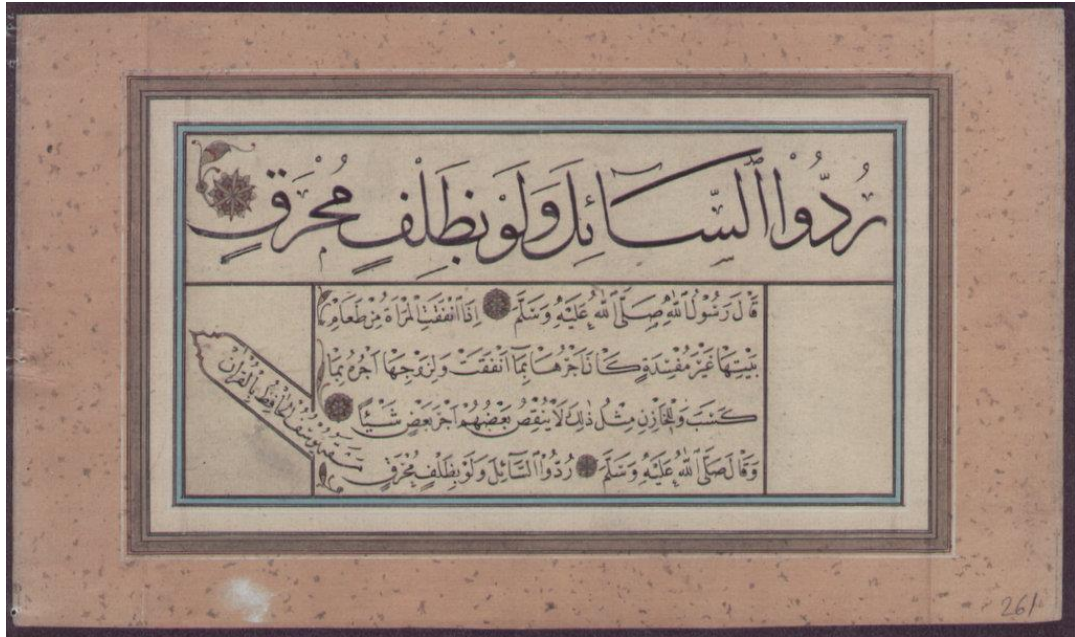 رُدُّوا السَّآئِلَ وَلَوْ بِظَلِفٍ مُحْرَقٍ
قَالَ رَسُولُ اللّٰهِ صَلَّى اللّٰهُ عَلَيْهِ وَسَلَّمَ اِذَا اَنْفَقَتِ الْمَرْاَةُ مِنْ طَعَامِ
بَيْتِهَا غَيْرَ مُفْسِدَةٍ كَانَ اَجْرُهَا بِمَا اَنْفَقَتْ وَلِزَوْجِهَا اَجْرُهُ بِمَا
كَسَبَ وَلِلْخَازِنِ مِثْلُ ذٰلِكَ لَا يَنْقُصُ بَعْضُهُمْ اَجْرَ بَعْضٍ شَيْئًا
وَقَالَ صَلَّى اللّٰهُ عَلَيْهِ وَسَلَّمَ رُدُّوا السَّآئِلَ وَلَوْ بِظَلِفٍ مُحْرَقٍ
يوسف الحافظ بالقران
261